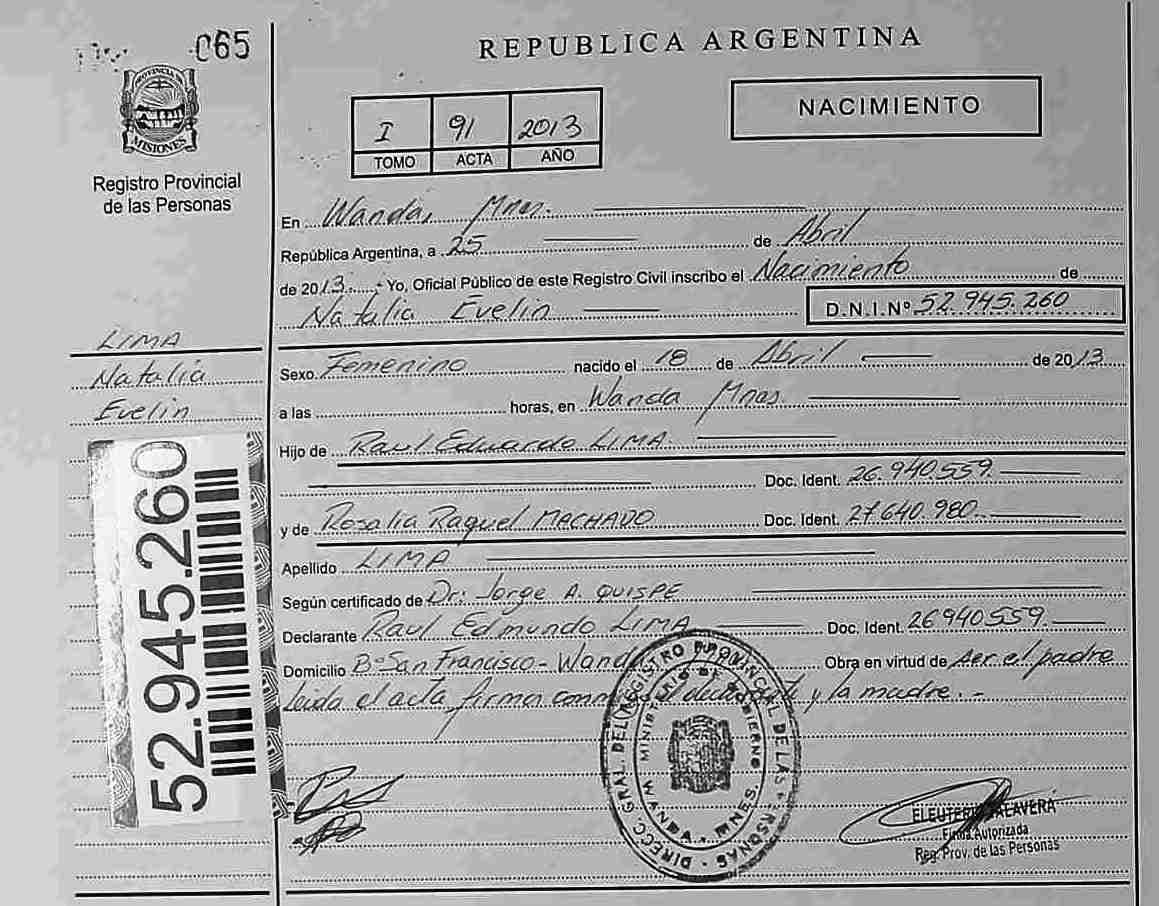 065
PROVINCIA DE
MISIONES
Registro Provincial
de las Personas
REPUBLICA ARGENTINA
NACIMIENTO
I 91 2013
TOMO ACTA AÑO
En Wanda, Mnes.
República Argentina, a 25 de Abril
de 2013 - Yo, Oficial Público de este Registro Civil inscribo el Nacimiento de
Natalia Evelin D.N.I.Nº 52.945.260
LIMA
Natalia
Evelin
52.945.260
Sexo Femenino nacido el 18 de Abril de 2013
a las horas, en Wanda Mnes.
Hijo de Raul Eduardo LIMA
Doc. Ident. 26.940.559
y de Rosalia Raquel MACHADO Doc. Ident. 27.640.980
Apellido LIMA
Según certificado de Dr: Jorge A. QUISPE
Declarante Raul Edmundo LIMA Doc. Ident. 26940559
Domicilio Bº San Francisco - Wanda Obra en virtud de ser el padre
Leida el acta firma el declarante y la madre. -
DIRECC. GRAL. DEL REGISTRO PROVINCIAL DE LAS PERSONAS
MINISTERIO DE GOBIERNO
WANDA - MNES.
ELEUTERIO TALAVERA
Firma Autorizada
Reg. Prov. de las Personas